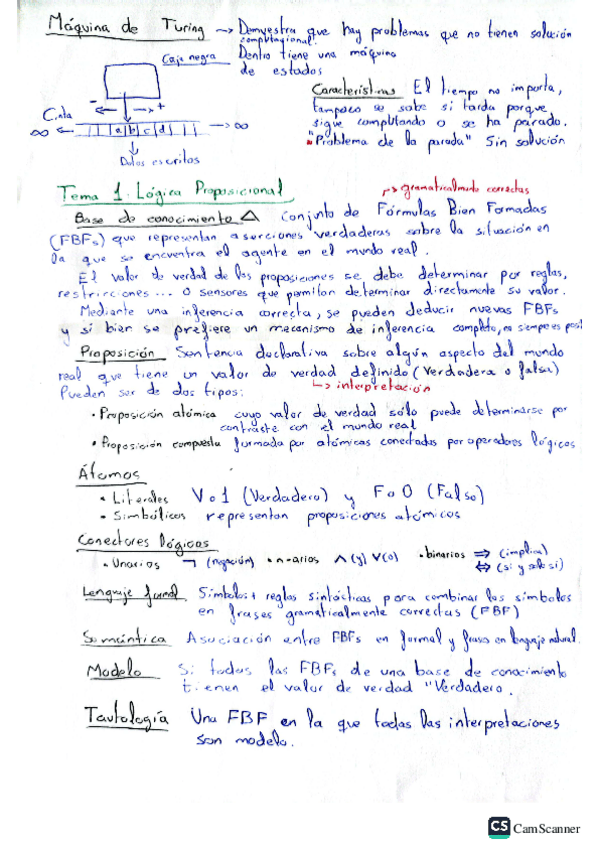 Máquina de Turing → Demuestra que hay problemas que no tienen solución
computacional.
Dentro tiene una máquina
de estados
Caja negra
- +
Cinta
∞ ← |a|b|c|d| → ∞
Datos escritos
Características El tiempo no importa,
tampoco se sabe si tarda porque
sigue computando o se ha parado.
"Problema de la parada" Sin solución
Tema 1. Lógica Proposicional
→ gramaticalmente correctas
Base de conocimiento Δ Conjunto de Fórmulas Bien Formadas
(FBFs) que representan aserciones verdaderas sobre la situación en
la que se encuentra el agente en el mundo real.
El valor de verdad de las proposiciones se debe determinar por reglas,
restricciones ... o sensores que permitan determinar directamente su valor.
Mediante una inferencia correcta, se pueden deducir nuevas FBFs
y si bien se prefiere un mecanismo de inferencia completo, no siempre es posi
Proposición Sentencia declarativa sobre algún aspecto del mundo
real que tiene un valor de verdad definido (Verdadera o falsa)
↳ interpretación
Pueden ser de dos tipos:
• Proposición atómica cuyo valor de verdad sólo puede determinarse por
contraste con el mundo real
• Proposición compuesta formada por atómicas conectadas por operadores lógicos
Átomos
• Literales V o 1 (Verdadero) y F o 0 (Falso)
• Simbólicos representan proposiciones atómicas
Conectores lógicos
• Unarios ¬ (negación) • n-arios ∧ (y) ∨ (o) • binarios ⇒ (implica)
⇔ (si y solo si)
Lenguaje formal Símbolos + reglas sintácticas para combinar los símbolos
en frases gramaticalmente correctas (FBF)
Semántica Asociación entre FBFs en formal y frases en lenguaje natural.
Modelo Si todas las FBFs de una base de conocimiento
tienen el valor de verdad "Verdadero.
Tautología Una FBF en la que todas las interpretaciones
son modelo.
CS CamScanner